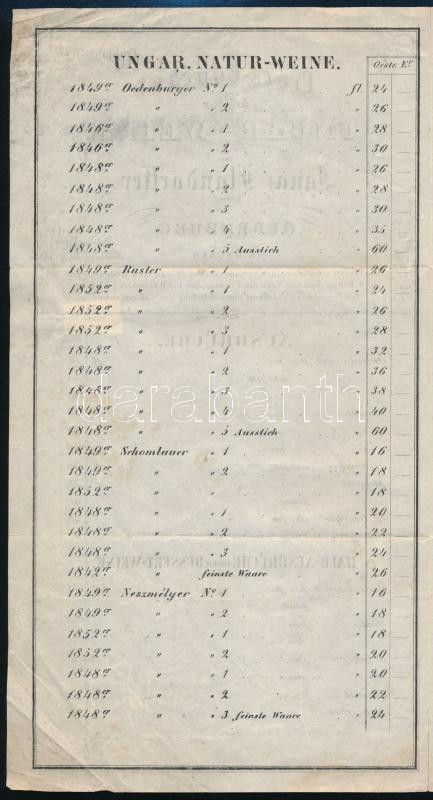 UNGAR. NATUR-WEINE.
Oestr. Er
1849er Oedenburger No 1 fl. 24
1849er " " 2 " 26
1846er " " 1 " 28
1846er " " 2 " 30
1848er " " 1 " 26
1848er " " 2 " 28
1848er " " 3 " 30
1848er " " 4 " 35
1848er " " 5 Ausstich " 60
1849er Ruster " 1 " 26
1852er " " 1 " 24
1852er " " 2 " 26
1852er " " 3 " 28
1848er " " 1 " 32
1848er " " 2 " 36
1848er " " 3 " 38
1848er " " 4 " 40
1848er " " 5 Ausstich " 60
1849er Schomlauer " 1 " 16
1849er " " 2 " 18
1852er " " " 18
1848er " " 1 " 20
1848er " " 2 " 22
1848er " " 3 " 24
1842er " feinste Waare " 26
1849er Neszmélyer No 1 " 16
1849er " " 2 " 18
1852er " " 1 " 18
1852er " " 2 " 20
1848er " " 1 " 20
1848er " " 2 " 22
1848er " " 3 feinste Waare " 24
darabanth